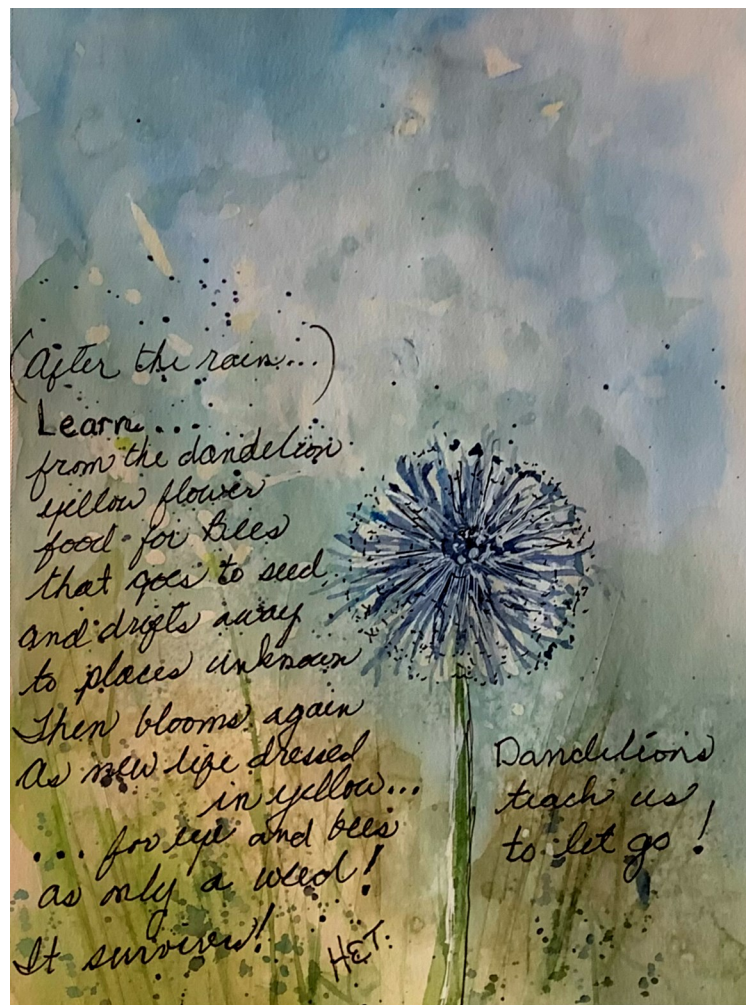 (After the rain...)
Learn...
from the dandelion
yellow flower
food for Bees
that goes to seed
and drifts away
to places unknown
Then blooms again
As new life dressed
in yellow...
... for eye and bees
as only a weed!
It survives!
HET.
Dandelions
teach us
to let go!